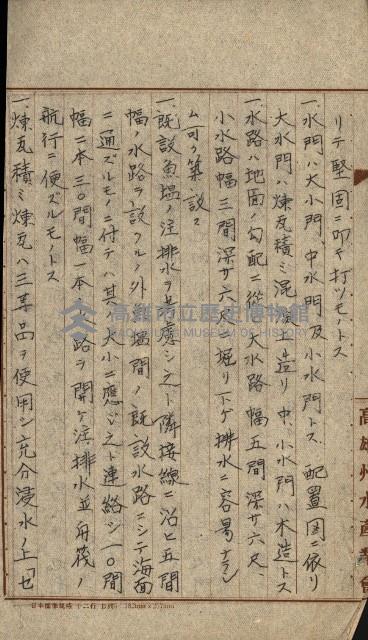 リテ堅固ニ叩キ打ツモノトス
一、水門ハ大小門、中水門及小水門トス、配置図ニ依リ
大水門ハ煉瓦積ミ混凝土造リ中、小水門ハ木造トス
一、水路ハ地面ノ勾配ニ従ヒ大水路幅五間深サ六尺、
小水路幅三間深サ六尺ニ掘リ下ゲ排水ニ容易ナラシ
ム可ク築設ス
一、既設魚塭ノ注排水ヲ考慮シ之ト隣接線ニ沿ヒ五間
幅ノ水路ヲ設フルノ外塭間ノ既設水路ニシテ海面
ニ通ズルモノニ付テハ其ノ大小ニ應ジ之ト連絡シ一〇間
幅二本三〇間幅一本ノ水路ヲ開ケ注排水並舟筏ノ
航行ニ便ズルモノトス
一、煉瓦積ミ煉瓦ハ三等品ヲ使用シ充分浸水ノ上「セ
高雄州水産會
高雄市立歷史博物館
KAOHSIUNG MUSEUM OF HISTORY
日本標準規格 十二行